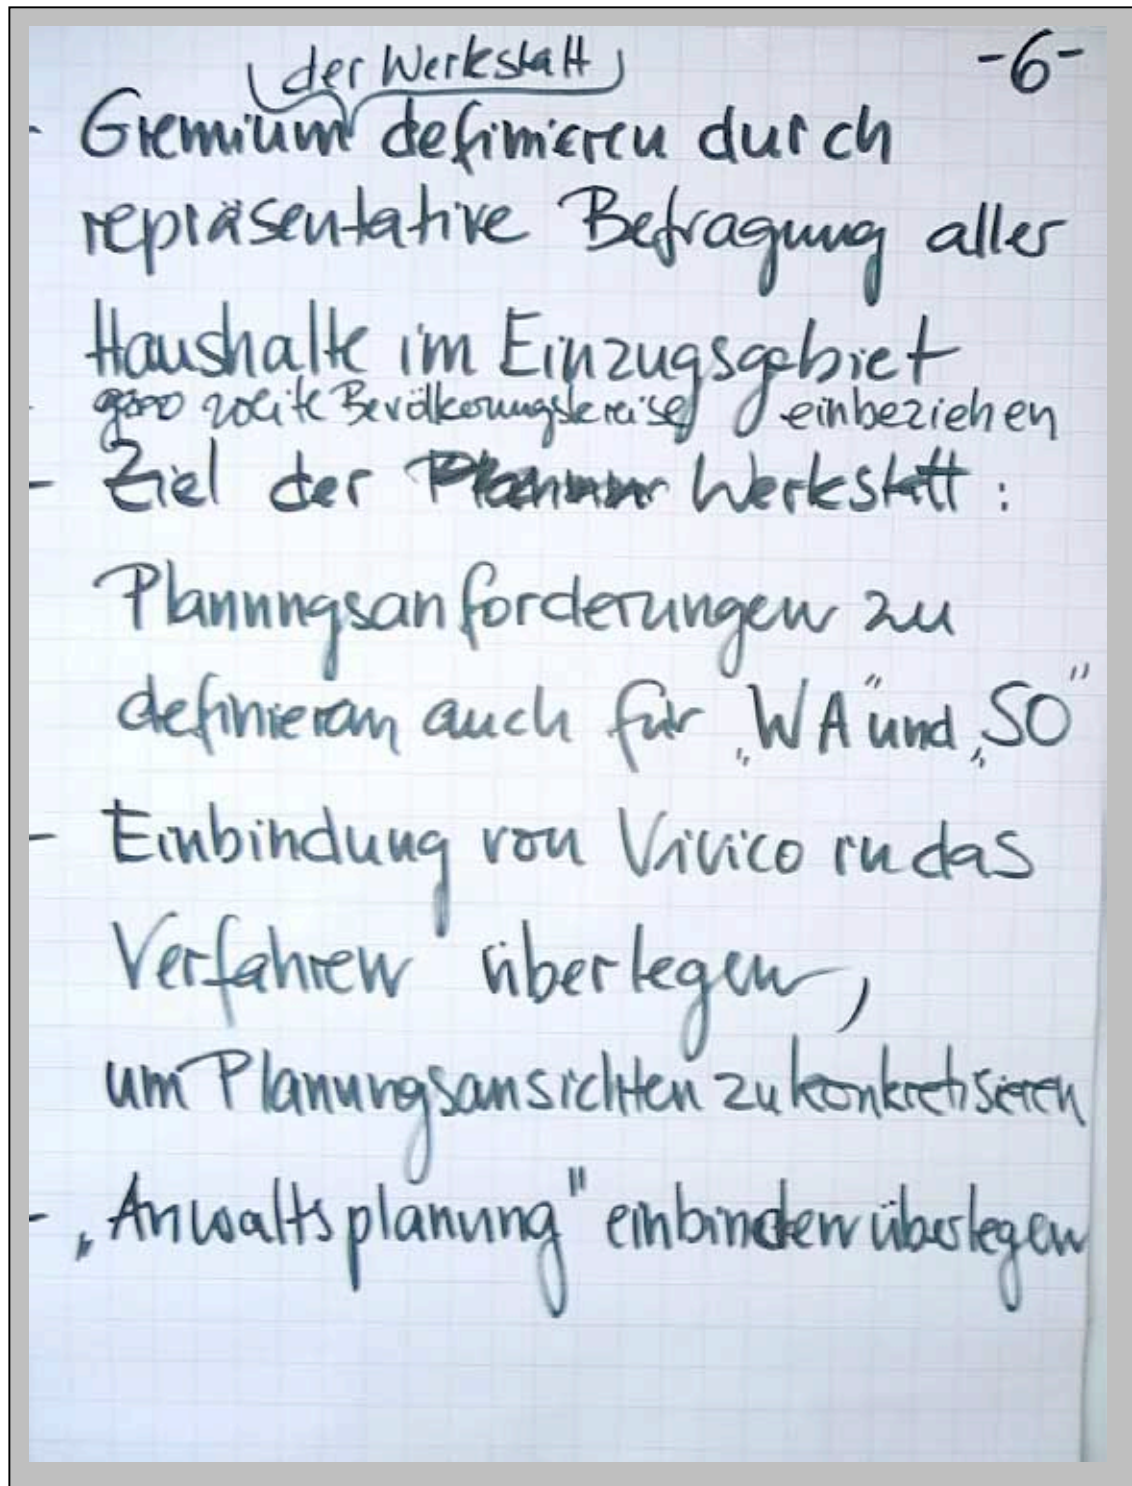 -6-
der Werkstatt
- Gremium definieren durch
repräsentative Befragung aller
Haushalte im Einzugsgebiet
- weite Bevölkerungskreise einbeziehen
- Ziel der Werkstatt:
Planungsanforderungen zu
definieren auch für „WA" und „SO"
- Einbindung von Vivico in das
Verfahren überlegen,
um Planungsansichten zu konkretisieren
- „Anwaltsplanung" einbinden überlegen